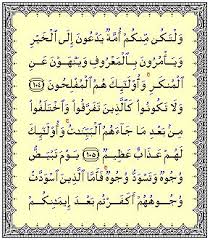 وَلْتَكُن مِّنكُمْ أُمَّةٌ يَدْعُونَ إِلَى الْخَيْرِ
وَيَأْمُرُونَ بِالْمَعْرُوفِ وَيَنْهَوْنَ عَنِ
الْمُنكَرِ وَأُوْلَـٰئِكَ هُمُ الْمُفْلِحُونَ ١٠٤
وَلَا تَكُونُوا كَالَّذِينَ تَفَرَّقُوا وَاخْتَلَفُوا
مِنْ بَعْدِ مَا جَاءَهُمُ الْبَيِّنَـٰتُ وَأُوْلَـٰئِكَ
لَهُمْ عَذَابٌ عَظِيمٌ ١٠٥ يَوْمَ تَبْيَضُّ
وُجُوهٌ وَتَسْوَدُّ وُجُوهٌ فَأَمَّا الَّذِينَ اسْوَدَّتْ
وُجُوهُهُمْ أَكَفَرْتُم بَعْدَ إِيمَـٰنِكُمْ